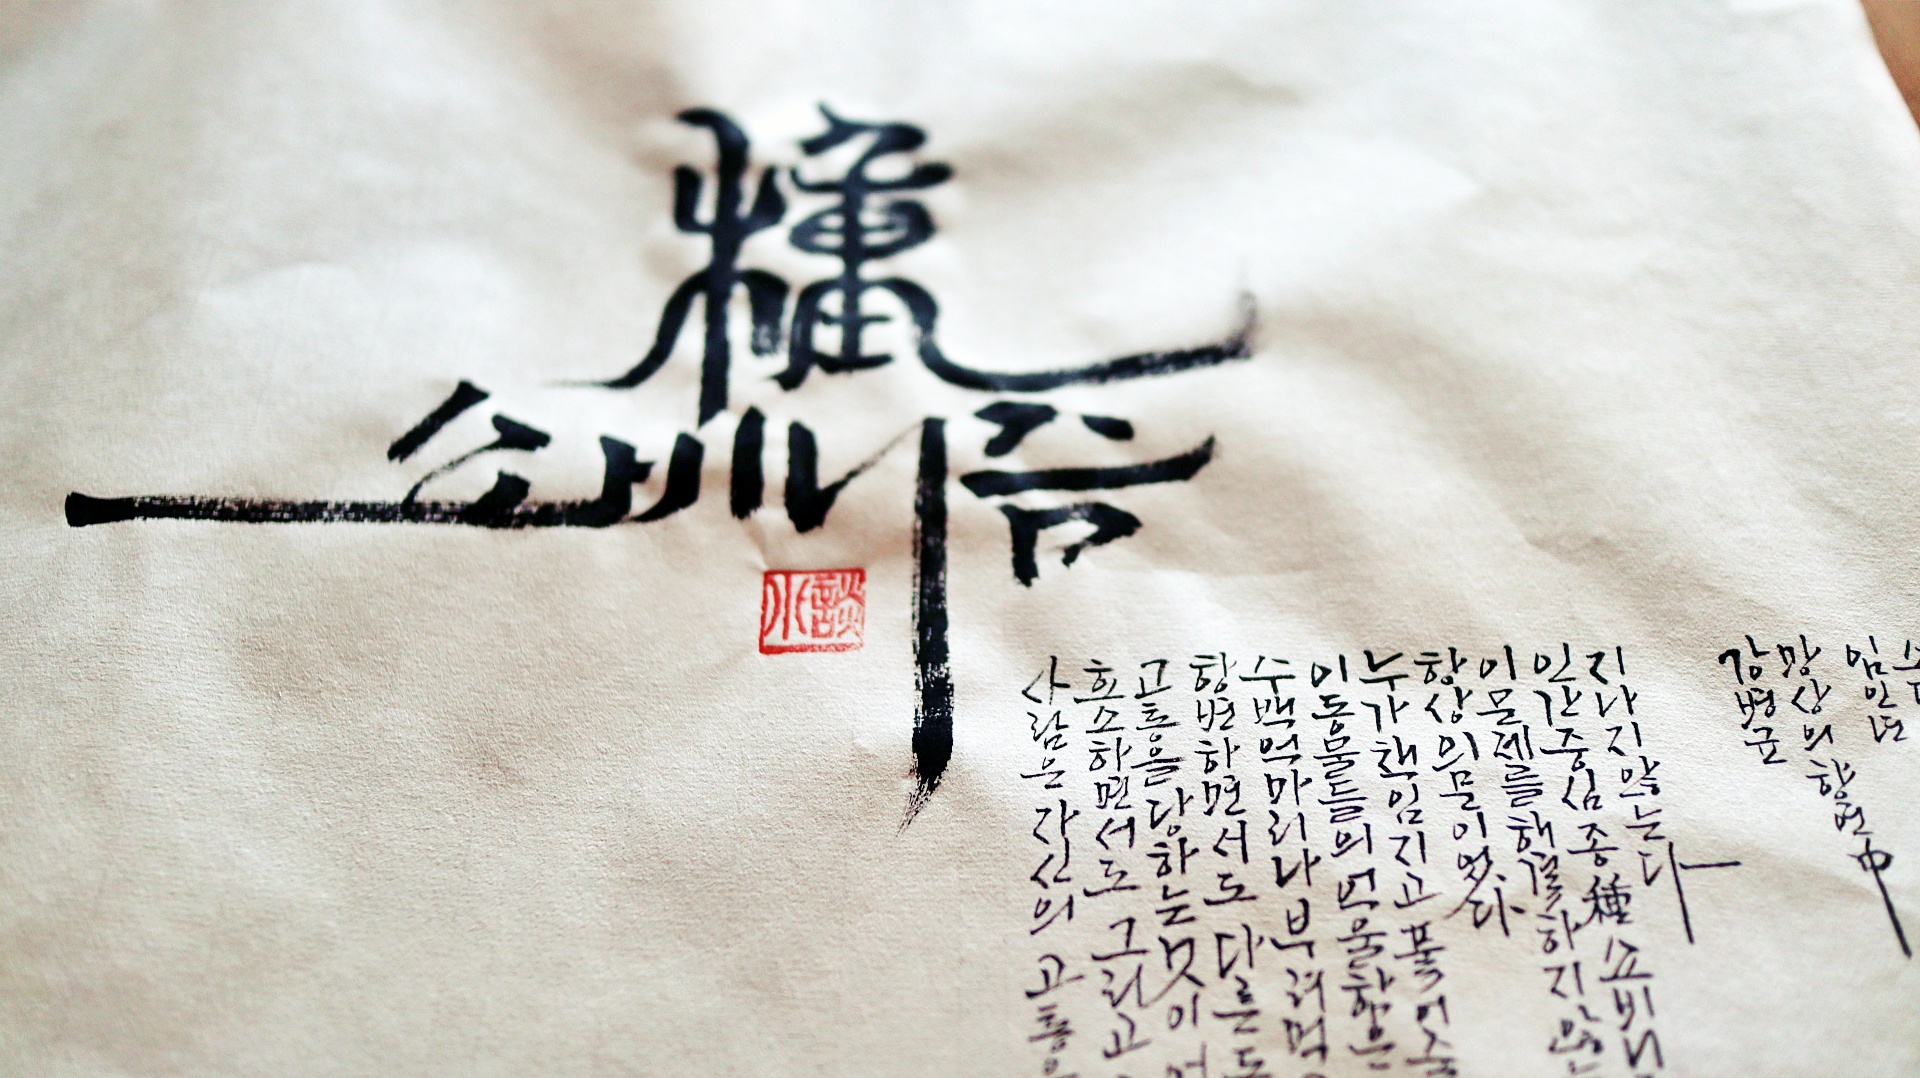 種
쇼비니즘
談水
사람은 자신의 고통을
호소하면서도 그리고
고통을 당하는 것이
항변하면서도 다른 동
수백억마리나 부려먹
이 동물들의 억울함은
누가 책임지고 풀어줄
항상 의문이었다
이 문제를 해결하지 않는
인간중심 종種 쇼비니
지나지 않는다
강병균
망상의 향연 中
임인년